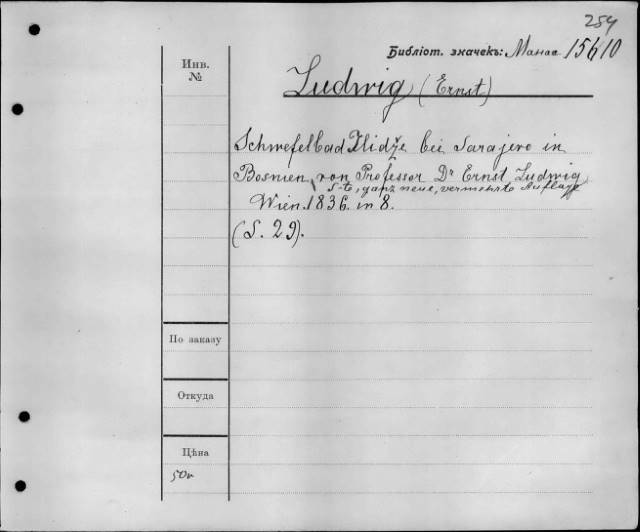 254
Библіот. значекъ: Манса 15610
Инв.
№
Ludwig (Ernst)
Schwefelbad Ilidže bei Sarajevo in
Bosnien, von Professor Dr Ernst Ludwig
5-te, ganz neue, vermehrte Auflage
Wien. 1836. in 8.
(S. 29).
По заказу
Откуда
Цѣна
50